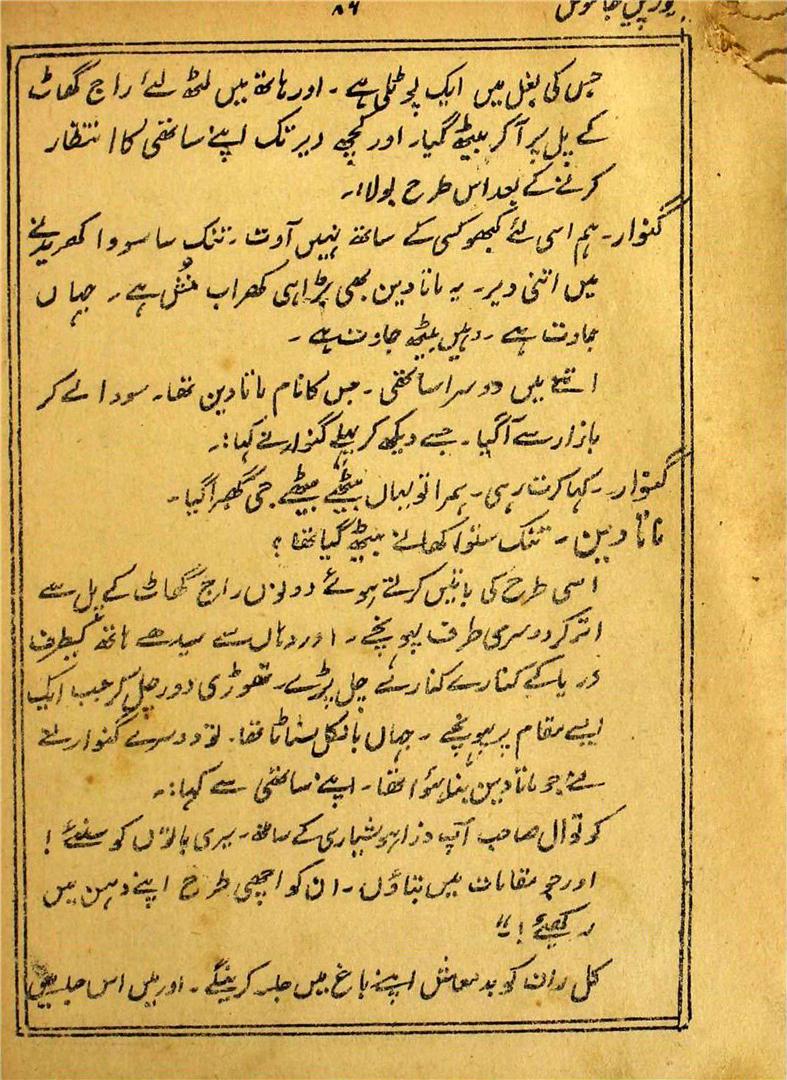 ۸۶
جس کی بغل میں ایک پوٹلی ہے ۔ اور ہاتھ میں لٹھ لئے راج گھاٹ
کے پل پر آ کر بیٹھ گیا۔ اور کچھ دیر تک اپنے ساتھی کا انتظار
کرنے کے بعد اس طرح بولا:۔
گنوار۔ ہم اسی لئے کبھو کسی کے ساتھ نہیں آوت ۔ تنک سا سودا کھریدنے
میں اتنی دیر۔ یہ ماتادین بھی بڑا ہی کھراب منئی ہے ۔ جہاں
جاوت ہے ۔ وہیں بیٹھ جاوت ہے ۔
اتنے میں دوسرا ساتھی ۔ جس کا نام ماتادین تھا۔ سودا لے کر
بازار سے آگیا ۔ جسے دیکھ کر پہلے گنوار نے کہا:۔
گنوار ۔ کہا کرت رہی ۔ ہمرا تو یہاں بیٹھے بیٹھے جی گھبرا گیا ۔
ماتا دین ۔ تنک ستوا کھانے بیٹھ گیا تھا ؟
اسی طرح کی باتیں کرتے ہوئے دونوں راج گھاٹ کے پل سے
اتر کر دوسری طرف پہونچے ۔ اور وہاں سے سیدھے ہاتھ کیطرف
دریا کے کنارے کنارے چل پڑے ۔ تھوڑی دور چل کر جب ایک
ایسے مقام پر پہونچے ۔ جہاں بالکل سناٹا تھا۔ تو دوسرے گنوار نے
نے جو ماتادین بنا ہوا تھا ۔ اپنے ساتھی سے کہا:۔
کوتوال صاحب آپ ذرا ہوشیاری کے ساتھ ۔ میری باتوں کو سنئے !
اور جو مقامات میں بتاؤں ۔ ان کو اچھی طرح اپنے ذہن میں
رکھئے ! ۔"
کل رات کو بدمعاش اپنے باغ میں جلسہ کرینگے ۔ اور میں اس جلسے میں